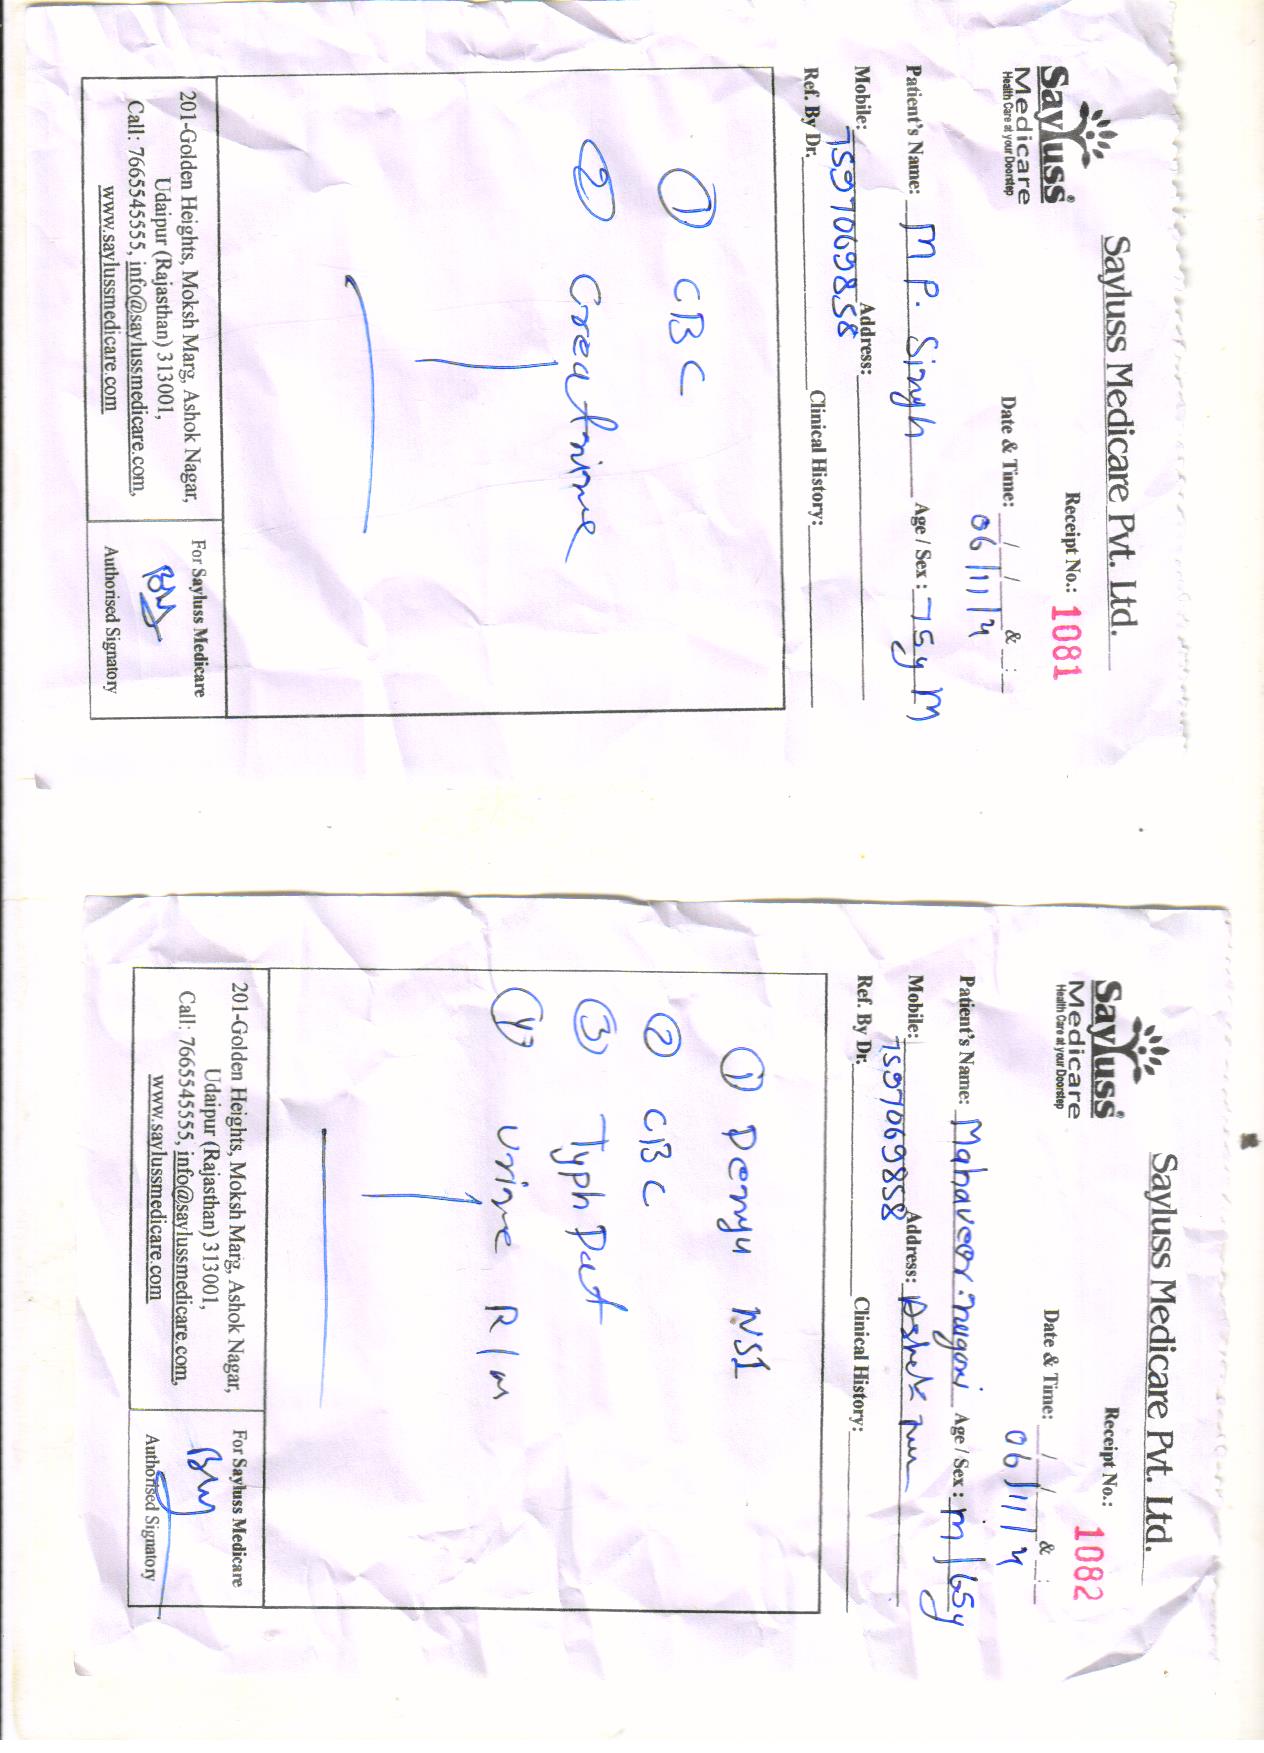 Sayluss®
Medicare
Health Care at your Doorstep
Sayluss Medicare Pvt. Ltd.
Receipt No.: 1081
Date & Time: __/__/__ & __:__
06/11/21
Patient's Name: M P. Singh Age / Sex : 75y M
Mobile: 7597069858 Address:
Ref. By Dr. Clinical History:
① CBC
② Creatinine
201-Golden Heights, Moksh Marg, Ashok Nagar,
Udaipur (Rajasthan) 313001,
Call: 7665545555, info@saylussmedicare.com,
www.saylussmedicare.com
For Sayluss Medicare
Authorised Signatory
Sayluss®
Medicare
Health Care at your Doorstep
Sayluss Medicare Pvt. Ltd.
Receipt No.: 1082
Date & Time: __/__/__ & __:__
06/11/21
Patient's Name: Mahaveer Age / Sex : M/65y
Mobile: 7597069858 Address: Ashok
Ref. By Dr. Clinical History:
① Dengu NS1
② CBC
③ Typh Dut
④ Urine R/m
201-Golden Heights, Moksh Marg, Ashok Nagar,
Udaipur (Rajasthan) 313001,
Call: 7665545555, info@saylussmedicare.com,
www.saylussmedicare.com
For Sayluss Medicare
Authorised Signatory